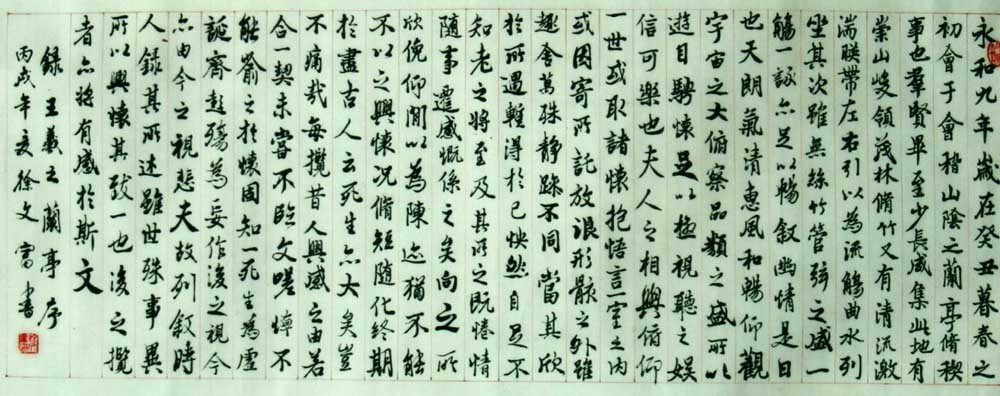 永和九年歲在癸丑暮春之
初會于會稽山陰之蘭亭脩稧
事也羣賢畢至少長咸集此地有
崇山峻領茂林脩竹又有清流激
湍暎帶左右引以為流觴曲水列
坐其次雖無絲竹管弦之盛一
觴一詠亦足以暢敘幽情是日
也天朗氣清惠風和暢仰觀
宇宙之大俯察品類之盛所以
遊目騁懷足以極視聽之娛
信可樂也夫人之相與俯仰
一世或取諸懷抱悟言一室之內
或因寄所託放浪形骸之外雖
趣舍萬殊靜躁不同當其欣
於所遇暫得於己怏然自足不
知老之將至及其所之既惓情
隨事遷感慨係之矣向之所
欣俛仰閒以為陳迹猶不能
不以之興懷況脩短隨化終期
於盡古人云死生亦大矣豈
不痛哉每攬昔人興感之由若
合一契未嘗不臨文嗟悼不
能喻之於懷固知一死生為虛
誕齊彭殤為妄作後之視今
亦由今之視悲夫故列敘時
人錄其所述雖世殊事異
所以興懷其致一也後之攬
者亦將有感於斯文
錄王羲之蘭亭序
丙戌年 徐文富書